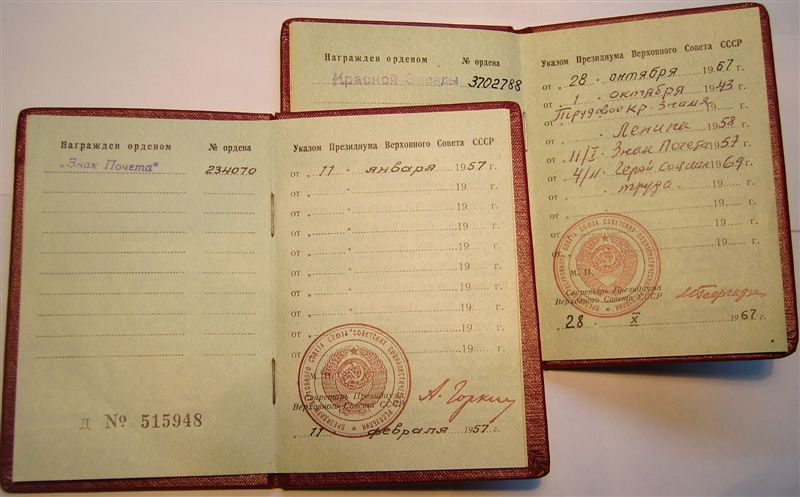 Награжден орденом № ордена
Красной Звезды 3702788
Указом Президиума Верховного Совета СССР
от „ 28 „ октября 1967 г.
от „ 1 „ октября 1943 г.
Трудовое Кр. Знамя
от Ленина 1958 г.
от 11/I Знак Почета 1957 г.
от 4/II Герой Социал 1969 г.
от труда 19 г.
от 19 г.
от 19 г.
М. П.
Секретарь Президиума
Верховного Совета СССР
28 X 1967 г.
Награжден орденом № ордена
„Знак Почета" 234070
Д № 515948
Указом Президиума Верховного Совета СССР
от „ 11 „ января 1957 г.
от „ „ 19 г.
от „ „ 19 г.
от „ „ 19 г.
от „ „ 19 г.
от „ „ 19 г.
от „ „ 19 г.
от „ „ 19 г.
от „ „ 19 г.
от „ 19
М. П.
Секретарь Президиума
Верховного Совета СССР
А. Горкин
„ 11 „ февраля 1957 г.